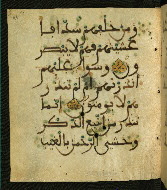 ومن خلفهم سدا فا
غشينهم فهم لا يبصر
ون وسواء عليهم
انذرتهم ام لم تنذر
هم لا يومنون انما
تنذر من اتبع الذكر
وخشي الرحمن بالغيب